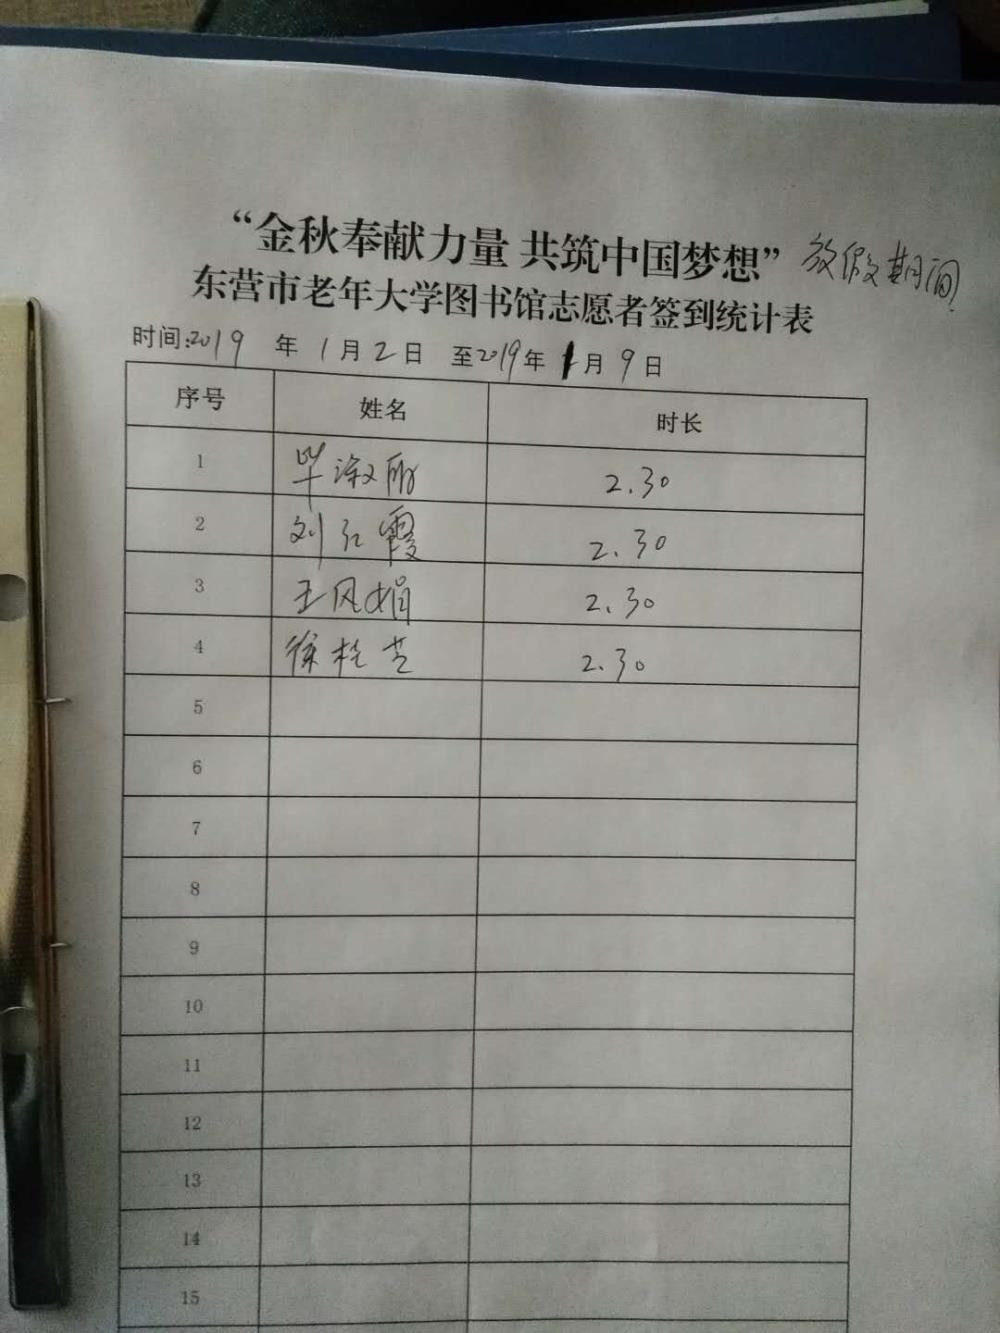 “金秋奉献力量 共筑中国梦想” 放假期间
东营市老年大学图书馆志愿者签到统计表
时间:2019 年 1月2日 至2019年1月9日
序号 姓名 时长
1 毕淑丽 2.30
2 刘红霞 2.30
3 王风娟 2.30
4 徐桂芝 2.30
5
6
7
8
9
10
11
12
13
14
15